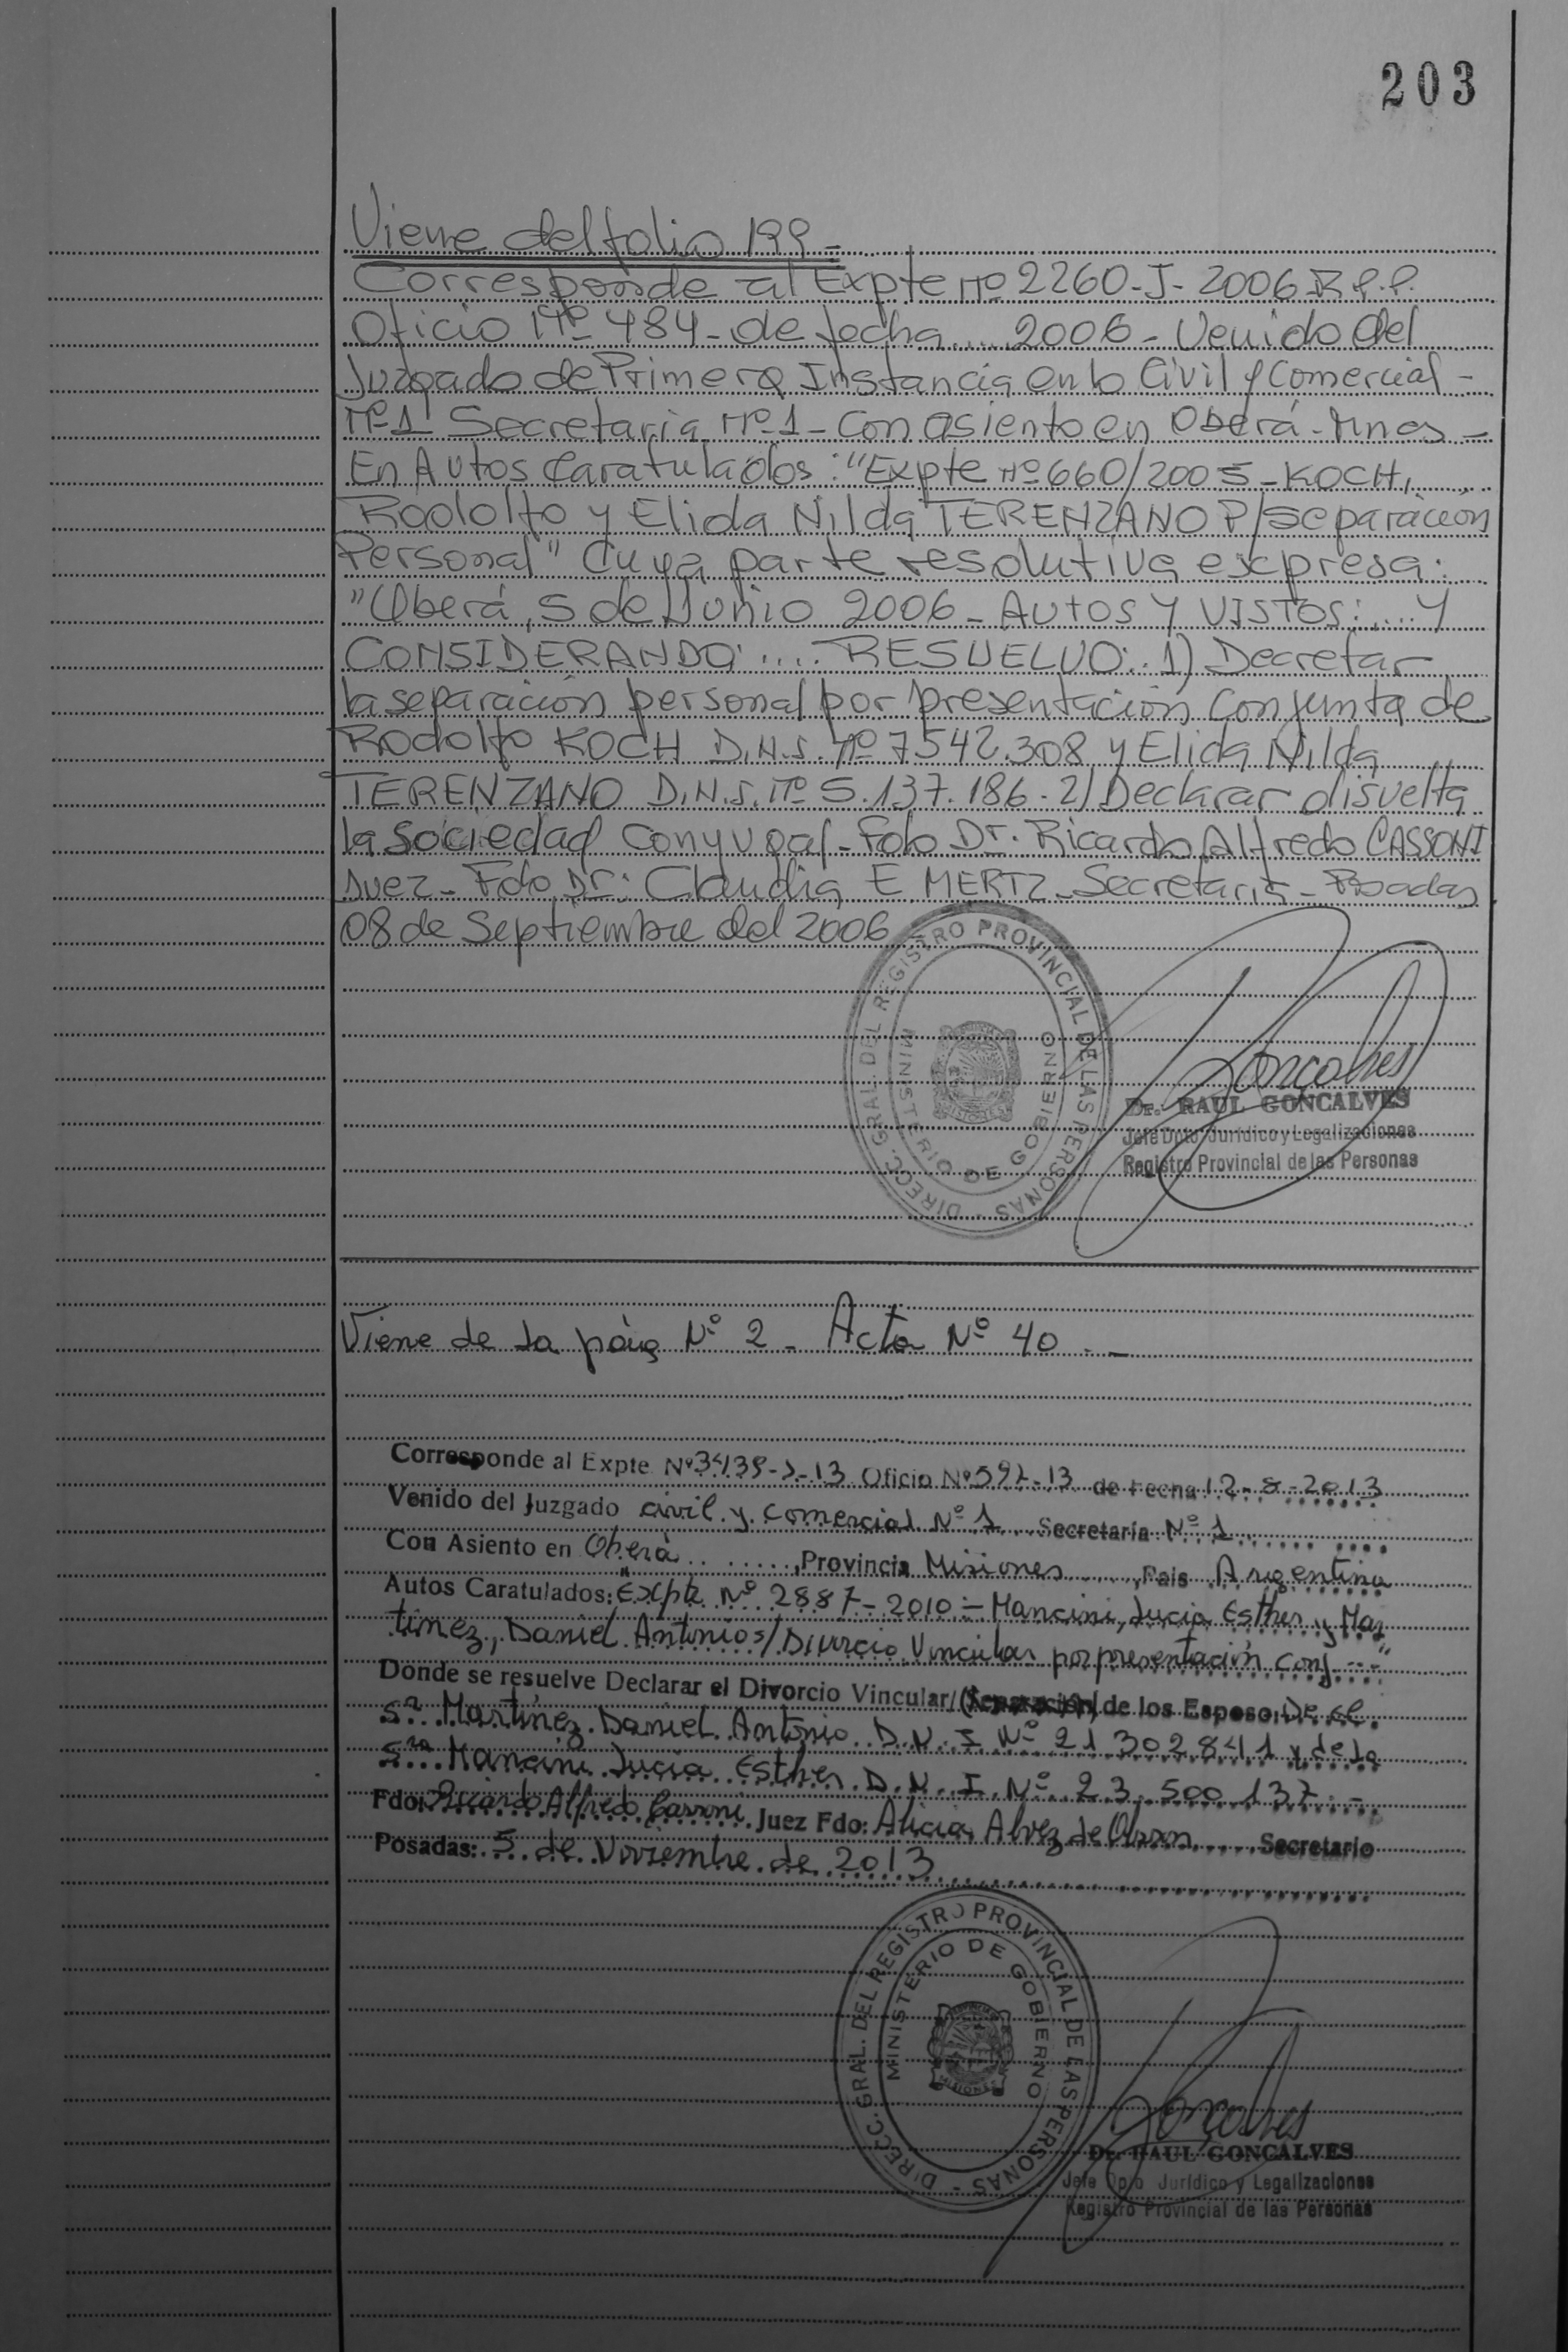 203
Viene del folio 199-
Corresponde al Expte Nº 2260-J-2006 R.P.P.
Oficio Nº 484- de fecha .... 2006- Venido del
Juzgado de Primera Instancia en lo Civil y Comercial -
Nº1 Secretaria Nº-1- Con asiento en Oberá- Mnes -
En Autos Caratulados: "Expte Nº 660/2005- KOCH,
Rodolfo y Elida Nilda TERENZANO P/Separación
Personal" Cuya parte resolutiva expresa:
"Oberá, 5 de Junio 2006- AUTOS Y VISTOS: .... Y
CONSIDERANDO: .... RESUELVO: 1) Decretar
la separación personal por presentación Conjunta de
Rodolfo KOCH D.N.I. Nº 7542.308 y Elida Nilda
TERENZANO D.N.I. Nº 5.137.186- 2) Declarar disuelta
la Sociedad Conyugal- Fdo Dr. Ricardo Alfredo CASSONI
Juez- Fdo Dr: Claudia E. MERTZ- Secretaria- Posadas
08 de Septiembre del 2006
DIRECC. GRAL. DEL REGISTRO PROVINCIAL DE LAS PERSONAS -
MINISTERIO DE GOBIERNO
Goncalves
Dr. RAUL GONCALVES
Jefe Dpto Jurídico y Legalizaciones
Registro Provincial de las Personas
Viene de la pág Nº 2 - Acta Nº 40 . -
Corresponde al Expte Nº -13 Oficio Nº -13 de Fecha 12-8-2013
Venido del Juzgado civil y Comercial Nº 1 Secretaría Nº 1
Con Asiento en Oberá , Provincia Misiones , Pais Argentina
Autos Caratulados: "Expte Nº 2887- 2010 - Mancini, Lucia Esther y Mar
tinez, Daniel Antonio s/ Divorcio Vincular por presentación conj---"
Donde se resuelve Declarar el Divorcio Vincular/(Separación) de los Esposo, De el
Sr Martínez Daniel Antonio D.N.I Nº 21302841 y de la
Sra Mancini Lucia Esther D.N.I. Nº 23.500.137 . -
Fdo: Ricardo Alfredo Cassoni Juez Fdo: Alicia Alvez de Secretario
Posadas: 5 de Noviembre de 2013
DIRECC. GRAL. DEL REGISTRO PROVINCIAL DE LAS PERSONAS -
MINISTERIO DE GOBIERNO
MISIONES
Goncalves
Dr. RAUL GONCALVES
Jefe Dpto Jurídico y Legalizaciones
Registro Provincial de las Personas